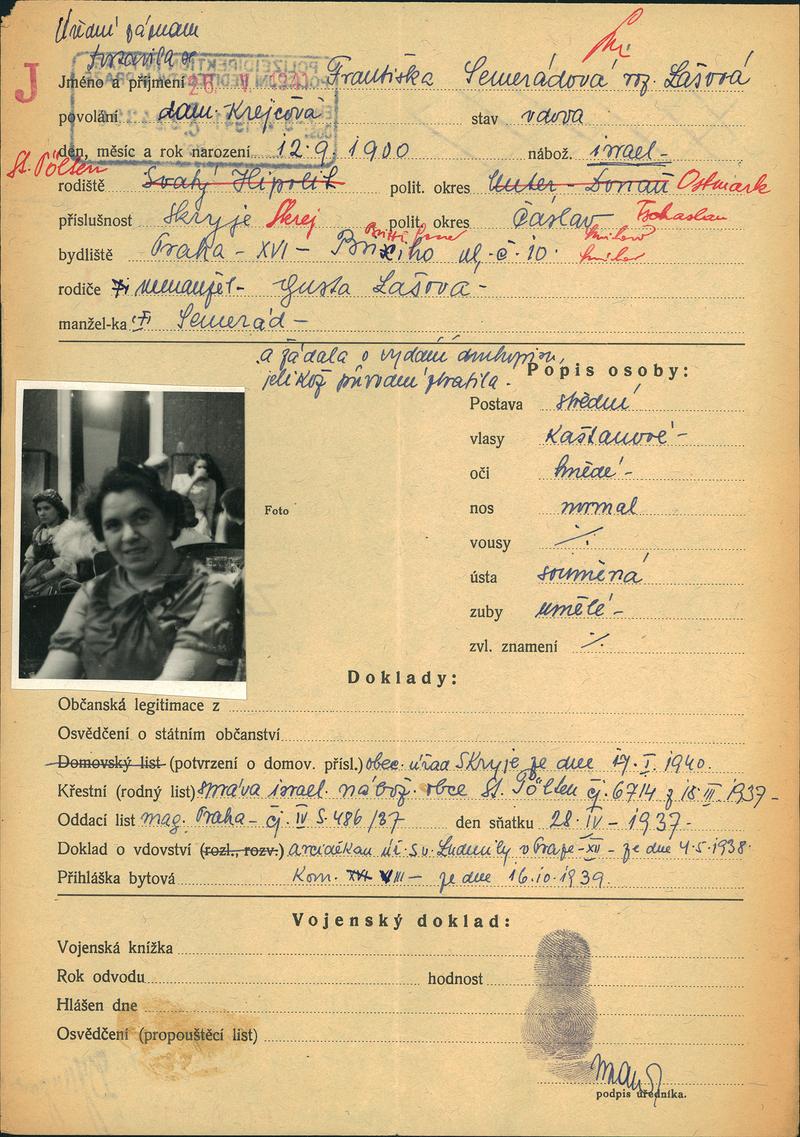 Úřední záznam
J
Jméno a příjmení Františka Semerádová roz. Lášová
povolání dam. Krejčová stav vdova
den, měsíc a rok narození 12.9.1900 nábož. israel-
St. Pölten
rodiště Svatý Hipolit polit. okres Unter-Donau Ostmark
příslušnost Skryje Skrej polit. okres Čáslav Tschaslau
bydliště Praha - XVI - ul. č. 10.
rodiče nemanžel- Gusta Lášová -
manžel-ka Semerád -
a žádala o vydání druhopisu,
jelikož původní ztratila.
Popis osoby:
Postava střední
vlasy Kaštanové -
oči hnědé -
Foto
nos normal
vousy ./.
ústa souměrná
zuby umělé -
zvl. znamení ./.
Doklady:
Občanská legitimace z
Osvědčení o státním občanství
Domovský list (potvrzení o domov. přísl.) obec. úřad Skryje ze dne 17. I. 1940.
Křestní (rodný list) správa israel. nábož. obce St. Pölten čj. 6714 z 18. III. 1937 -
Oddací list mag. Praha - čj. IV S. 486/37 den sňatku 28. IV - 1937 -
Doklad o vdovství (rozl., rozv.) arciděkan úř. Sv. Ludmily v Praze - XII - ze dne 4.5.1938.
Přihláška bytová Kom. XVI VIII - ze dne 16.10.1939.
Vojenský doklad:
Vojenská knížka
Rok odvodu hodnost
Hlášen dne
Osvědčení (propouštěcí list)
podpis úředníka.